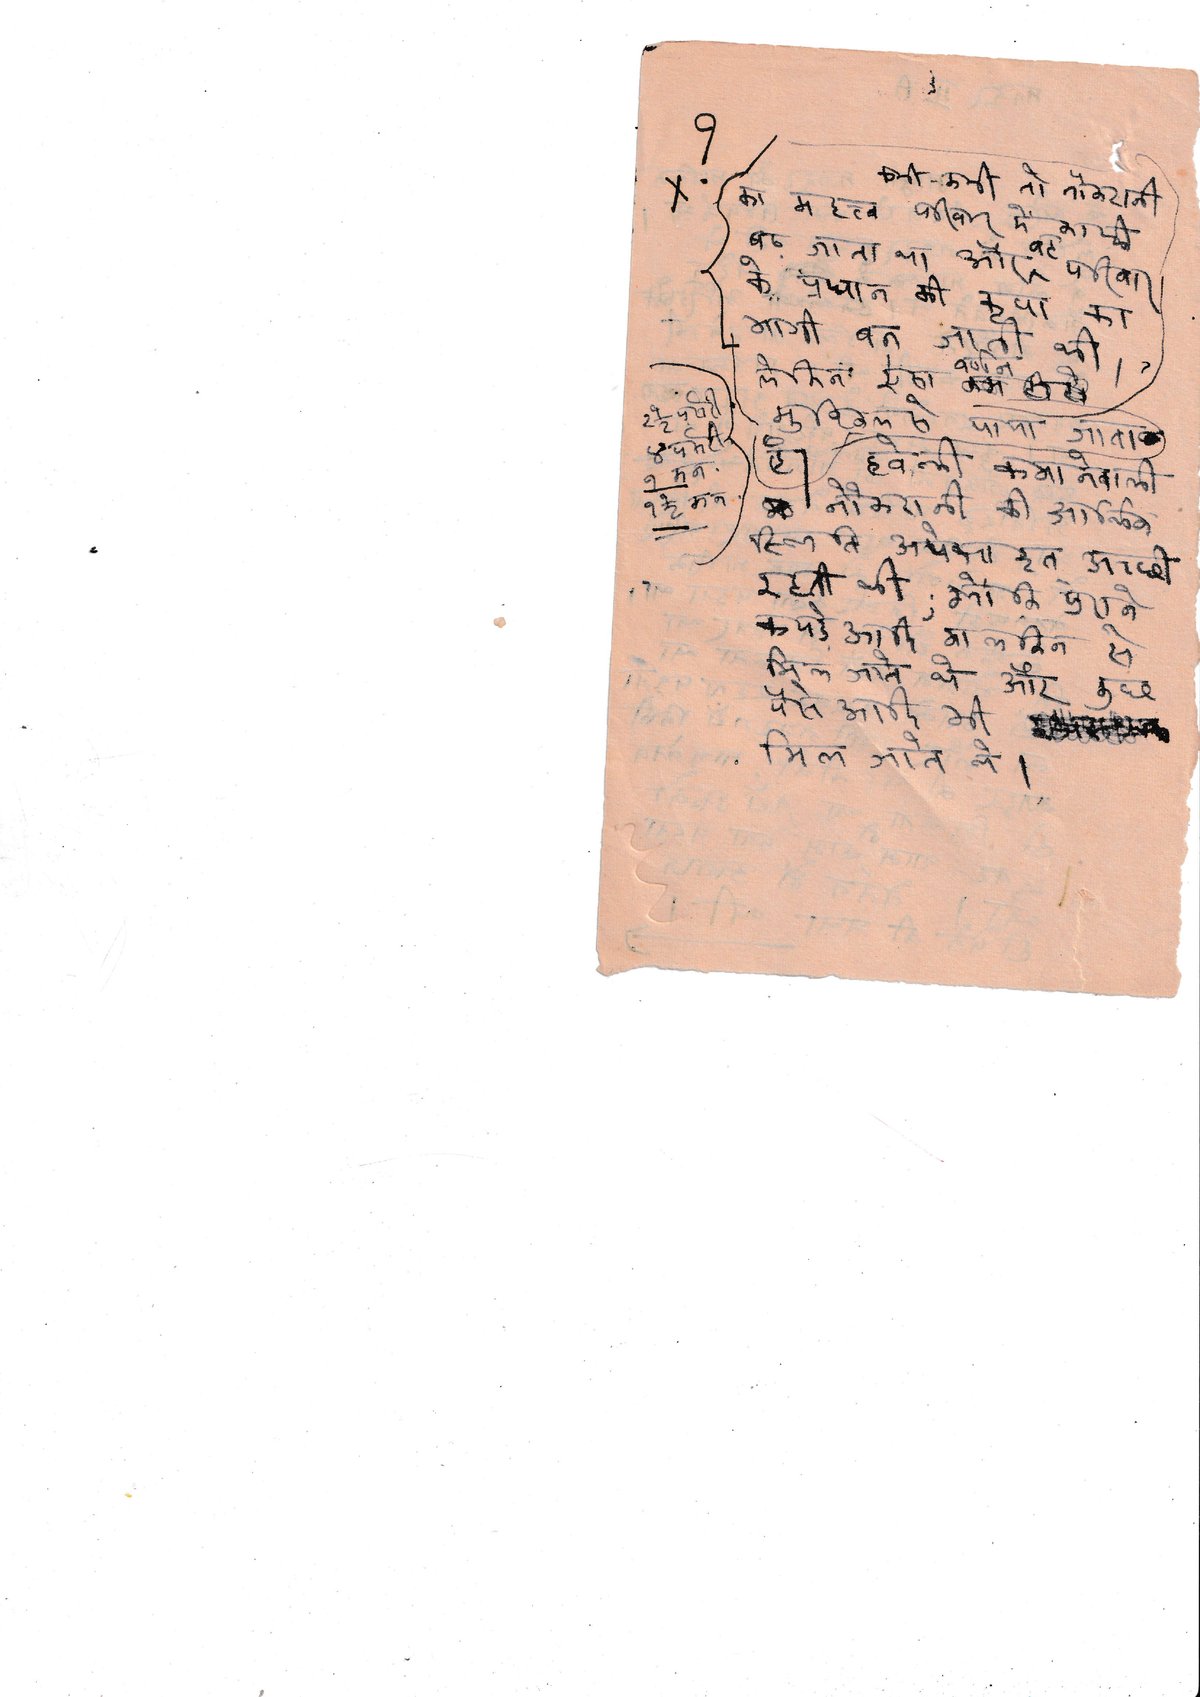 ३
?
X
कभी-कभी तो नौकरानी
का महत्त्व परिवार में काफी
बढ़ जाता था और वह परिवार
के प्रधान की कृपा का
भागी बन जाती थी।
लेकिन ऐसा वर्णन
मुश्किल से पाया जाता
है। हवेली कमानेवाली
नौकरानी की आर्थिक
स्थिति अपेक्षाकृत अच्छी
रहती थी; क्योंकि पुराने
कपड़े आदि मालकिन से
मिल जाते थे और कुछ
पैसे आदि भी
मिल जाते थे।
१ मन
मन